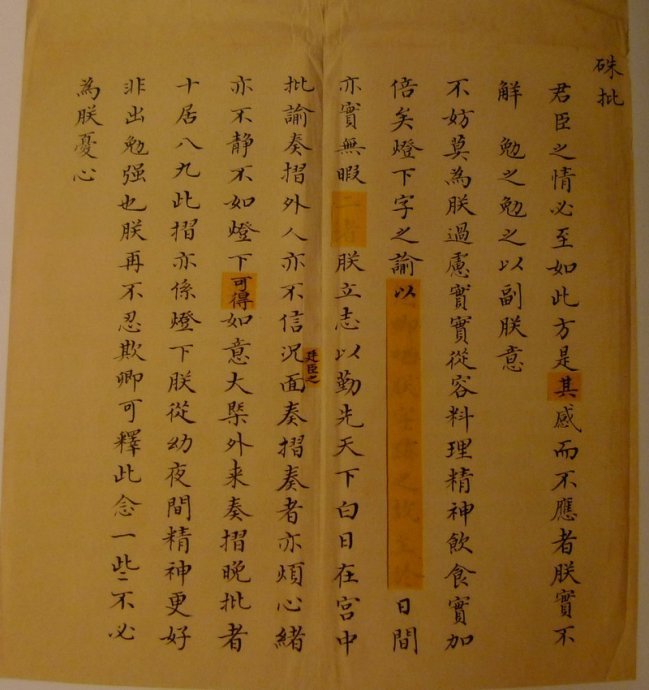 硃批
君臣之情必至如此方是其感而不應者朕實不
解 勉之勉之以副朕意
不妨莫為朕過慮實實從容料理精神飲食實加
倍矣燈下字之諭以日間
亦實無暇朕立志以勤先天下白日在宮中
批諭奏摺外人亦不信況廷臣之面奏摺奏者亦煩心緒
亦不静不如燈下可得如意大槩外来奏摺晚批者
十居八九此摺亦係燈下朕從幼夜間精神更好
非出勉强也朕再不忍欺卿可釋此念一些二不必
為朕憂心